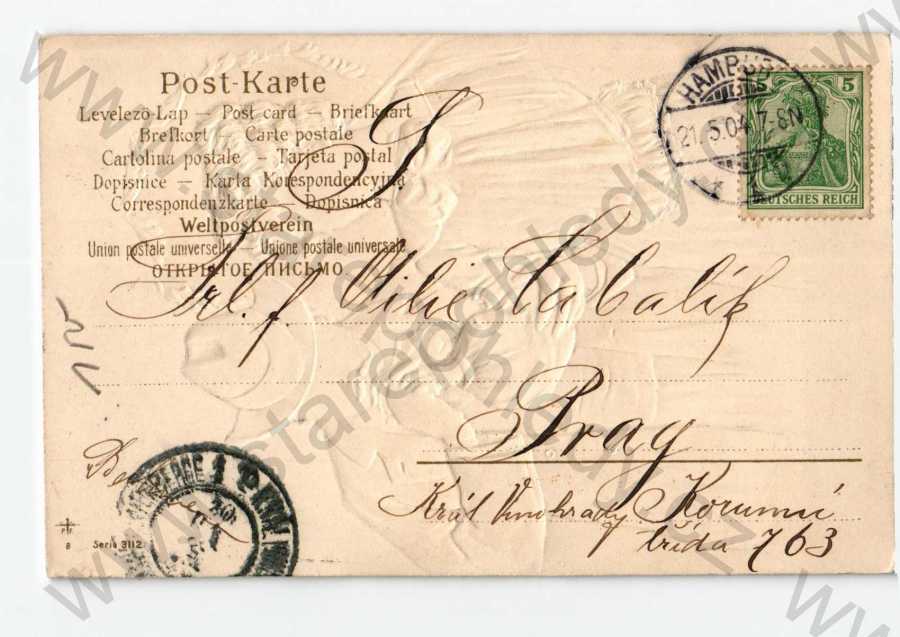 Post-Karte
Levelező-Lap — Post card — Briefkaart
Brefkort — Carte postale
Cartolina postale — Tarjeta postal
Dopisnice — Karta Korespondencyjna
Correspondenzkarte — Dopisnica
Weltpostverein
Union postale universelle — Unione postale universale
ОТКРЫТОЕ ПИСЬМО.
HAMBURG
21.5.04.7-8N
1
5
DEUTSCHES REICH
Frl. f. Cabalík
Prag
Král Vinohrady Korunní
třída 763
8 Serie 3112
www.starepohledy.cz